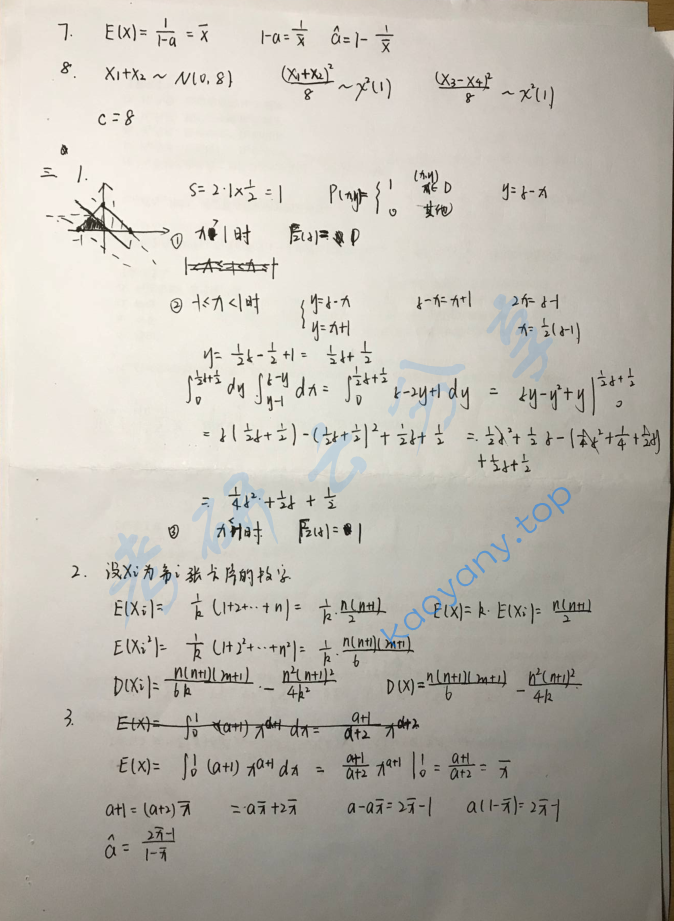 7. E(X) = 1/(1-a) = x̄   1-a = 1/x̄   â = 1 - 1/x̄
8. X₁+X₂ ~ N(0, 8)   (X₁+X₂)²/8 ~ χ²(1)   (X₃-X₄)²/8 ~ χ²(1)
c = 8
三 1. S = 2·1×1/2 = 1   P(x,y) = { 1 (x,y)∈D   0 其他   y = z-x
-1 1
① 时 F_Z(z) = 0
② -1≤x<1时   { y=z-x   y=x+1   z-x=x+1   2x=z-1   x=1/2(z-1)
y = 1/2z - 1/2 + 1 = 1/2z + 1/2
∫₀^(1/2z+1/2) dy ∫_(y-1)^(z-y) dx = ∫₀^(1/2z+1/2) z-2y+1 dy = zy-y²+y |₀^(1/2z+1/2)
= z(1/2z+1/2) - (1/2z+1/2)² + 1/2z + 1/2 = 1/2z² + 1/2z - (1/4z² + 1/4 + 1/2z)
+ 1/2z + 1/2
= 1/4z² + 1/2z + 1/2
③ 时 F_Z(z) = 1
2. 设Xi为第i张卡片的数字
E(Xi) = 1/k (1+2+···+n) = 1/k · n(n+1)/2   E(X) = k·E(Xi) = n(n+1)/2
E(Xi²) = 1/k (1+2²+···+n²) = 1/k · n(n+1)(2n+1)/6
D(Xi) = n(n+1)(2n+1)/6k - n²(n+1)²/4k²   D(X) = n(n+1)(2n+1)/6 - n²(n+1)²/4k
3. E(X) = ∫₀¹ (a+1) x^(a+1) dx = (a+1)/(a+2) x^(a+2)
E(X) = ∫₀¹ (a+1) x^(a+1) dx = (a+1)/(a+2) x^(a+1) |₀¹ = (a+1)/(a+2) = x̄
a+1 = (a+2)x̄   = ax̄+2x̄   a-ax̄ = 2x̄-1   a(1-x̄) = 2x̄-1
â = (2x̄-1)/(1-x̄)
考研云分享
kaoyany.top